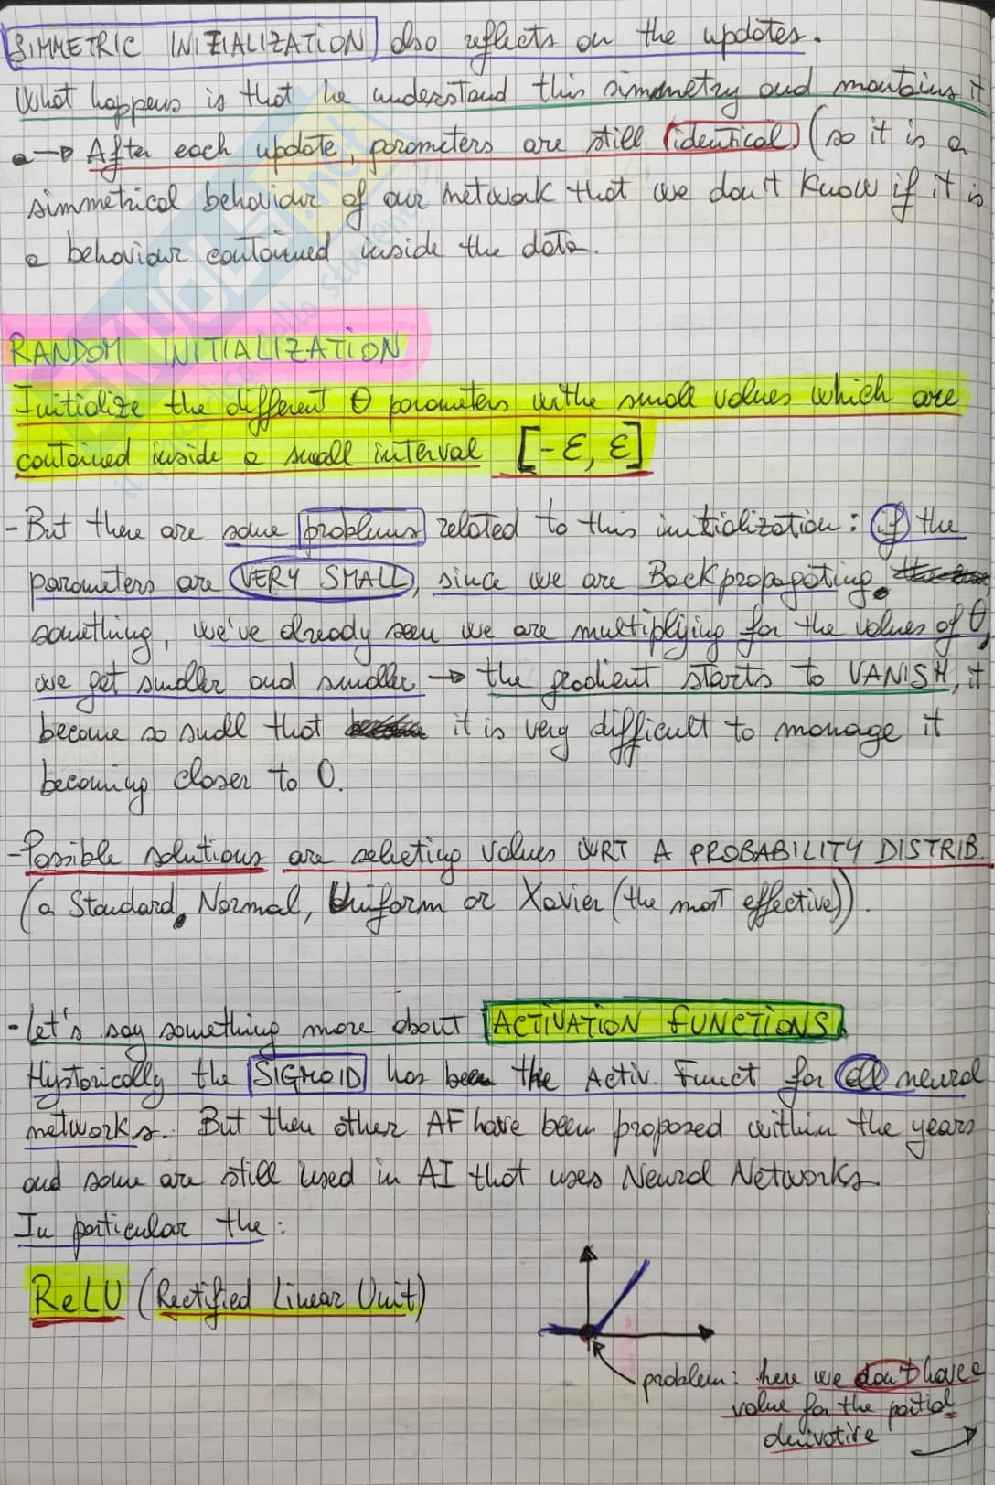 SIMMETRIC INIZIALIZATION also reflects on the updates.
What happens is that he understand this simmetry and mantains it
→ After each update, parameters are still identical (so it is a
simmetrical behaviour of our network that we don't know if it is
a behaviour contained inside the data.
RANDOM INITIALIZATION
Initialize the different θ parameters withe small values which are
contained inside a small interval [-ε, ε]
- But there are some problems related to this initialization: if the
parameters are VERY SMALL, since we are Backpropagating
something, we've already seen we are multiplying for the values of θ,
we get smaller and smaller → the gradient starts to VANISH, it
become so small that it is very difficult to manage it
becoming closer to 0.
- Possible solutions are selecting values WRT A PROBABILITY DISTRIB.
(a Standard, Normal, Uniform or Xavier (the most effective)).
- Let's say something more about ACTIVATION FUNCTIONS.
Hystorically the SIGMOID has been the Activ. Funct for all neural
networks. But then other AF have been proposed within the years
and some are still used in AI that uses Neural Networks.
In particular the:
ReLU (Rectified Linear Unit)
problem: here we don't have a
value for the partial
derivative →